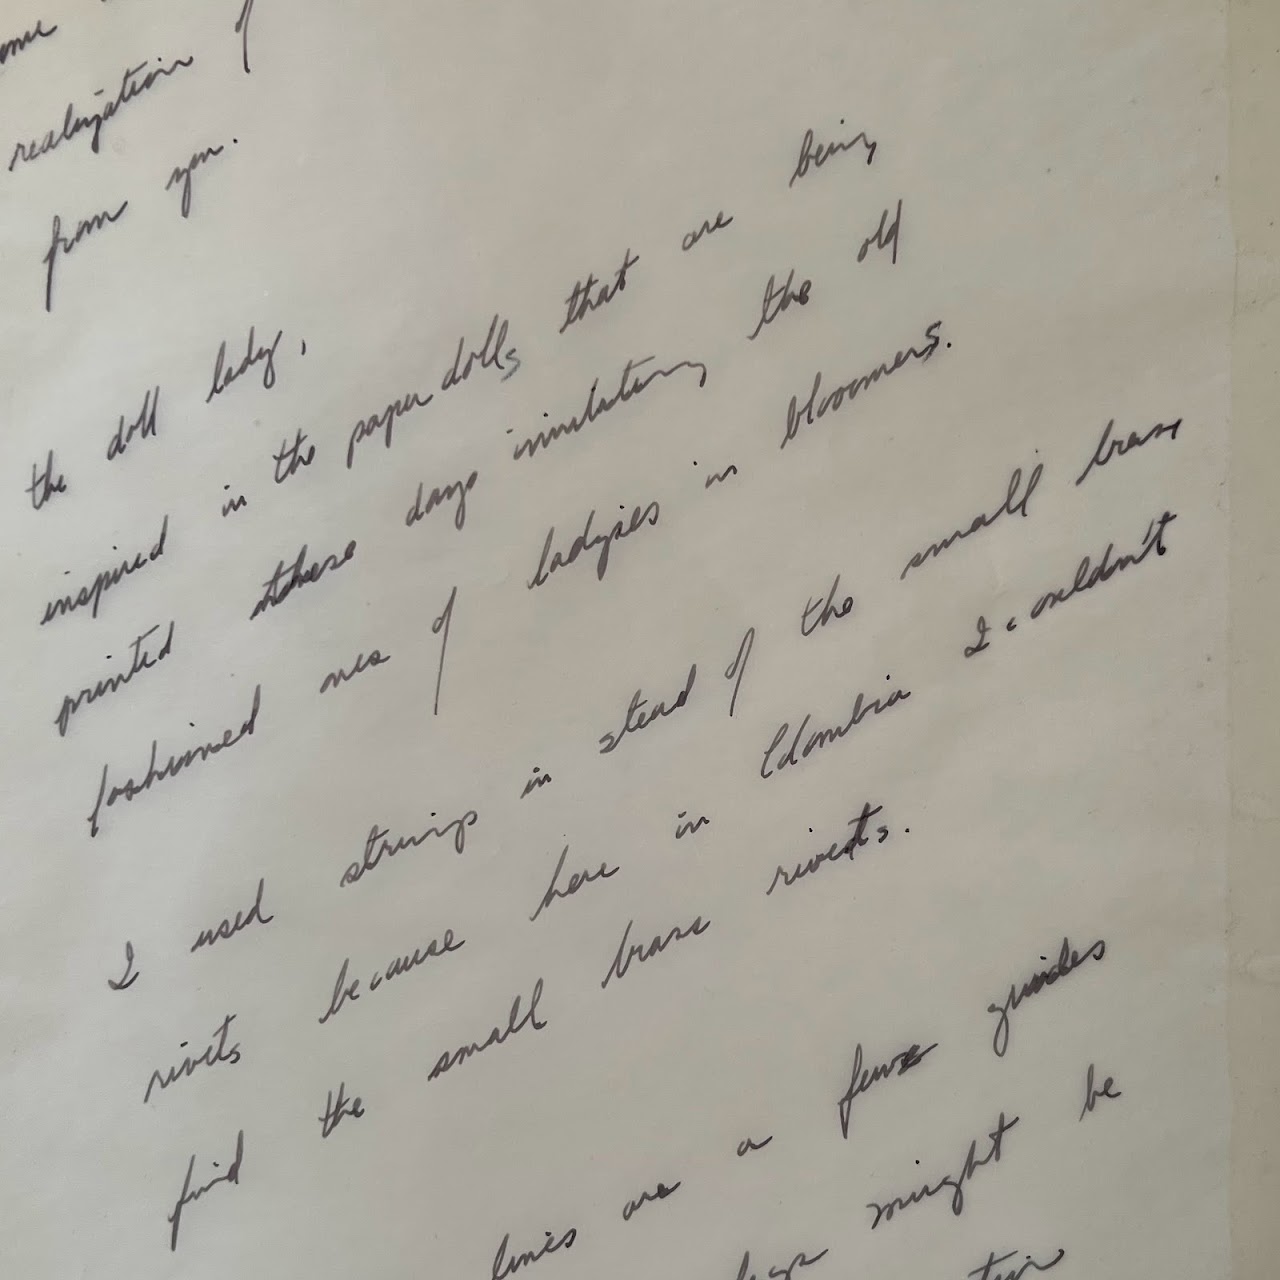 realization of
from you.
the doll lady,
inspired in the paper dolls that are being
printed these days imitating the old
fashioned ones of ladyies in bloomers.
I used strings in stead of the small brass
rivets because here in Colombia I couldn't
find the small brass rivets.
lines are a few guides
might be